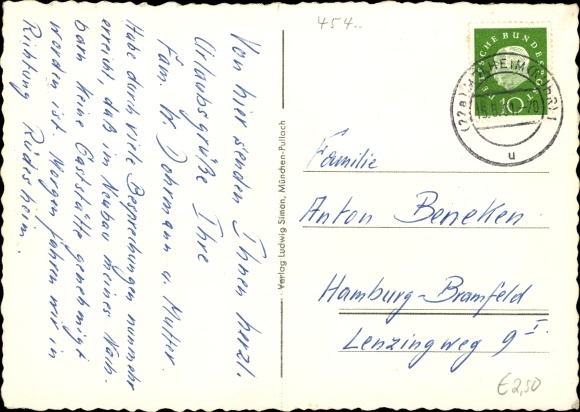 Von hier senden Ihnen herzl.
Urlaubsgrüße Ihre
Fam. W. Dohrmann u. Mutter.
Habe durch viele Besprechungen nunmehr
erreicht, daß im Neubau meines Nach-
barn keine Gaststätte genehmigt
worden ist. Morgen fahren wir in
Richtung Rüdesheim.
Verlag Ludwig Simon, München-Pullach
454..
DEUTSCHE BUNDESPOST
10
(22a)
u
Familie
Anton Beneken
Hamburg-Bramfeld
Lenzingweg 9 I.
€ 2,50